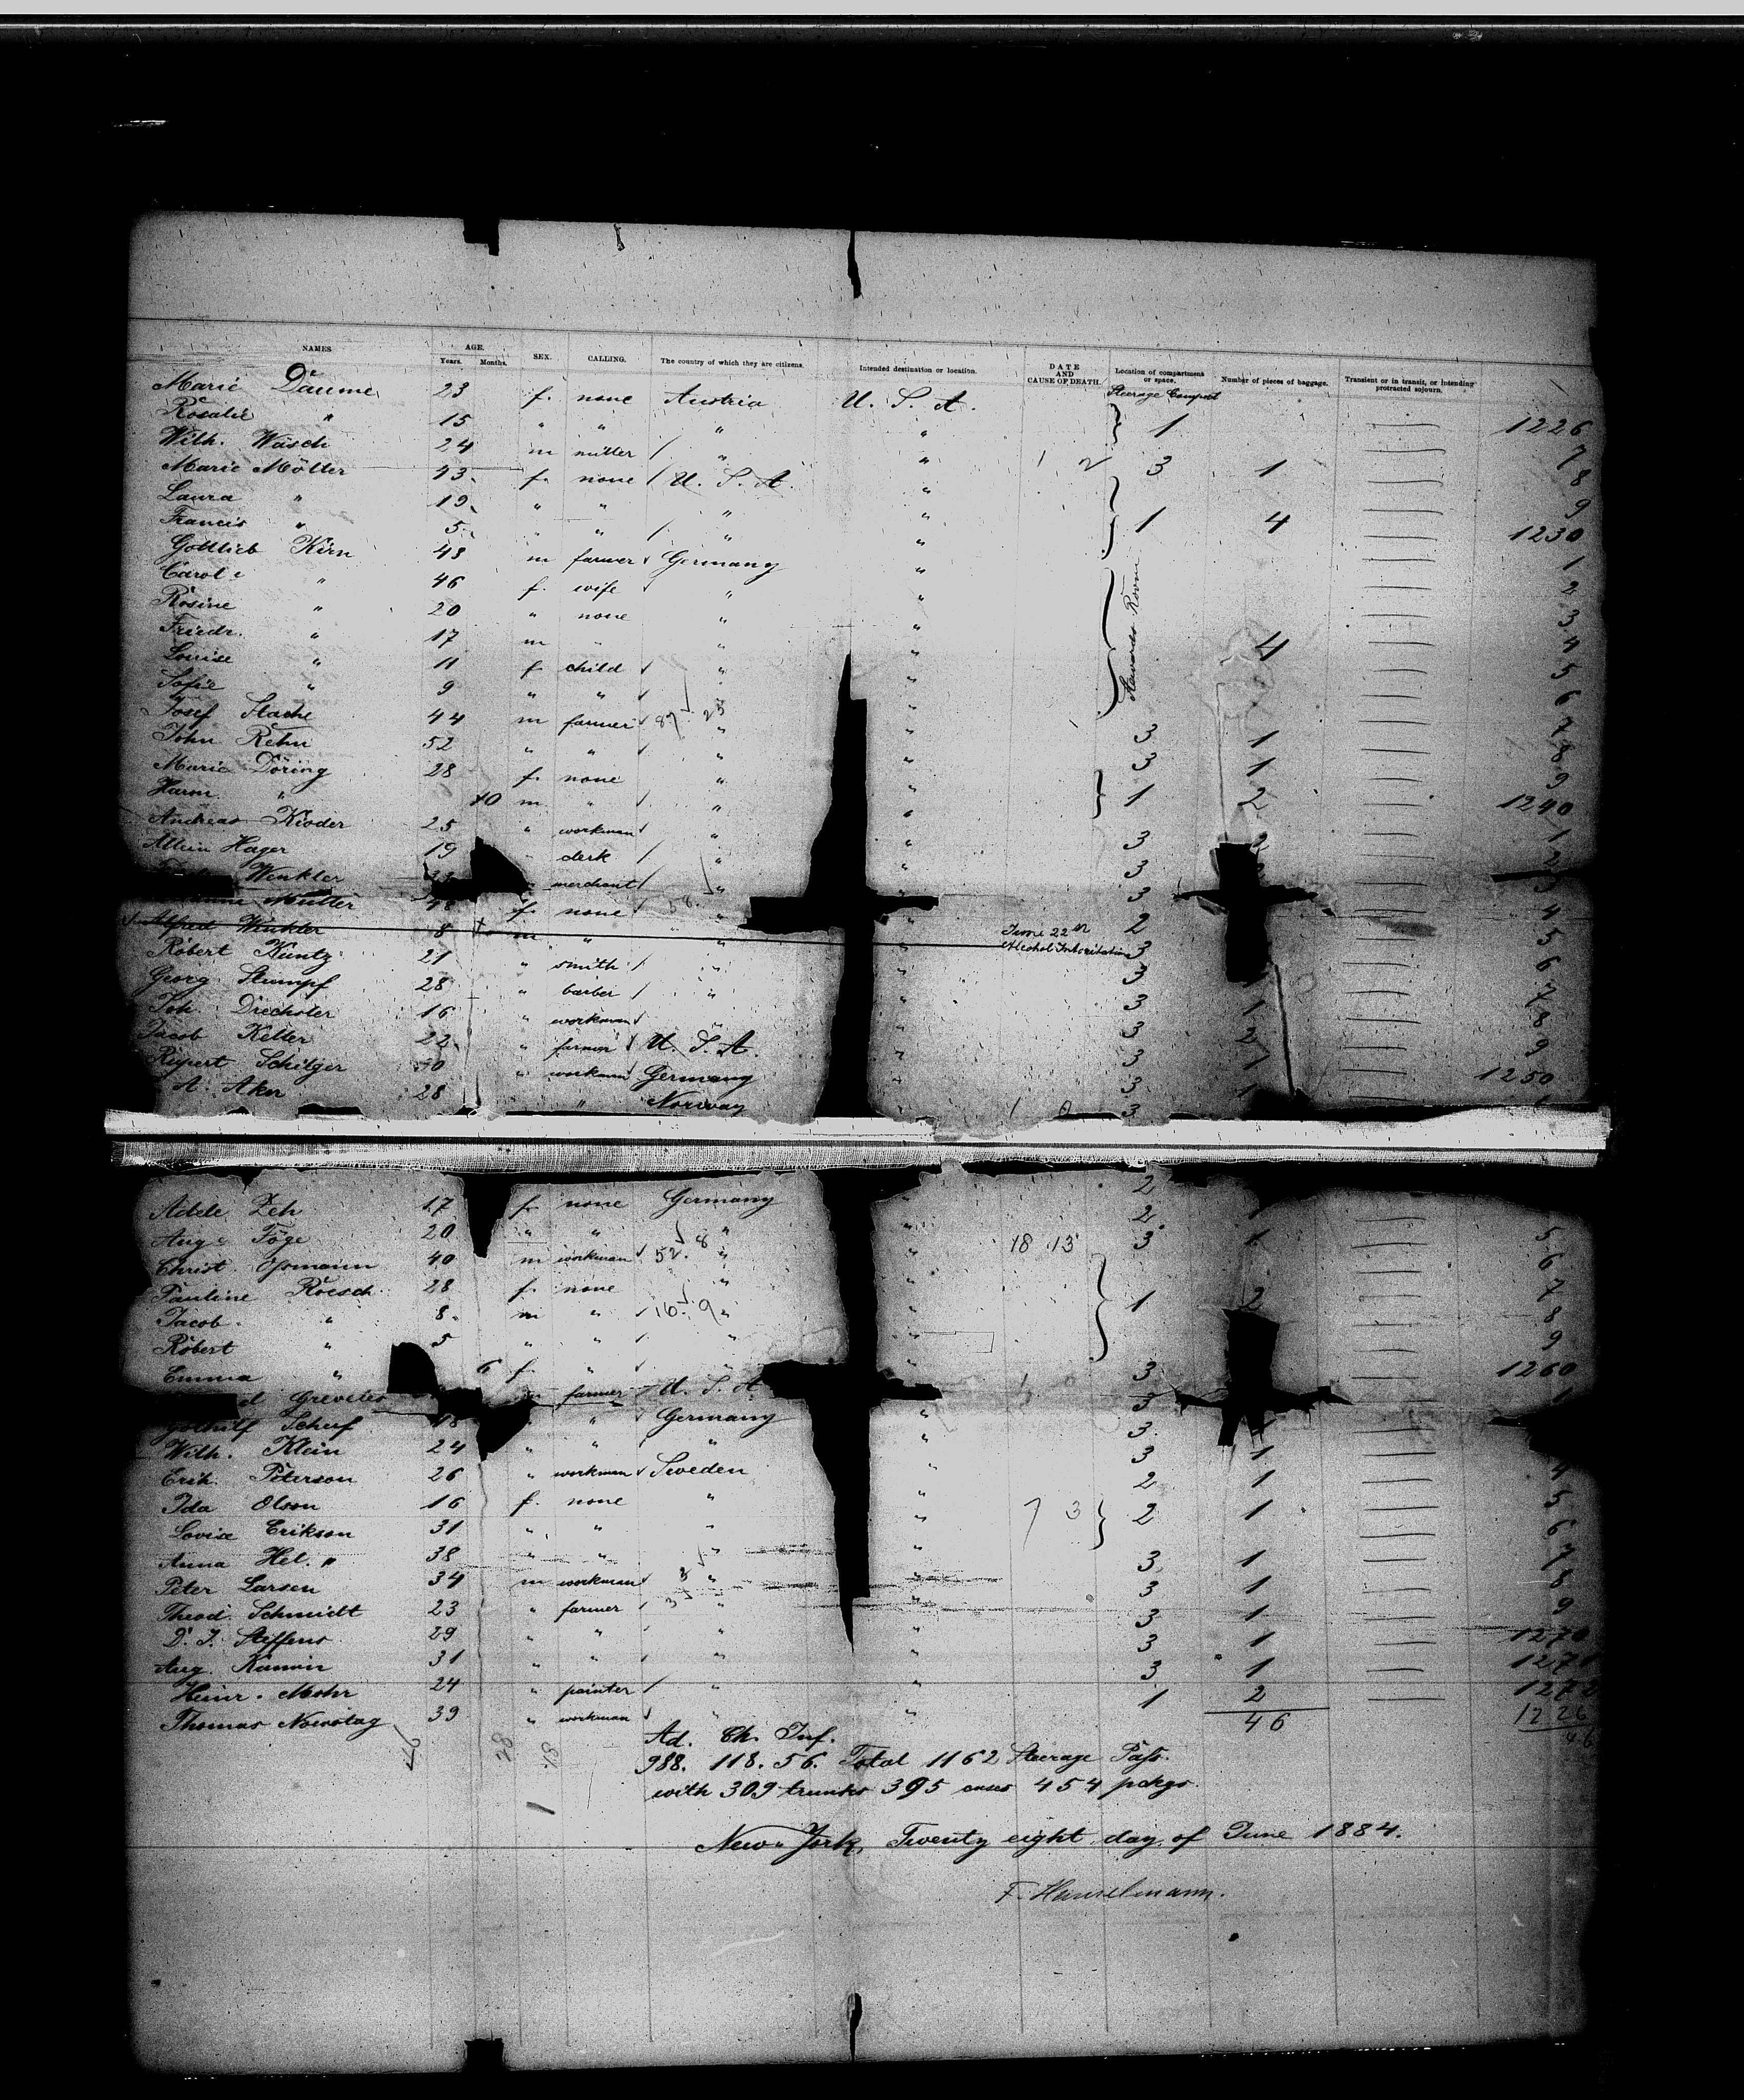 NAMES AGE. Years. Months. SEX. CALLING. The country of which they are citizens. Intended destination or location. DATE AND CAUSE OF DEATH. Location of compartment or space. Number of pieces of baggage. Transient or in transit, or intending protracted sojourn.
Steerage Compart
Marie Däume 23 f. none Austria U. S. A.
Rosalie " 15 " " " " 1 1226
Wilh. Wäsch 24 m miller " " 3 1 7
Marie Möller 43 f. none U. S. A. " 8
Laura " 19 " " " " 9
Francis " 5 " " " " 1 4 1230
Gottlieb Kirn 48 m farmer Germany " 1
Carol " 46 f. wife " " 2
Rosine " 20 " none " " 3
Friedr. " 17 m " " " Stewards Room 4 4
Louise " 11 f child " " 5
Sofie " 9 " " " " 6
Josef Stache 44 m farmer " " 3 1 7
John Rehn 52 " " " " 3 1 8
Marie Döring 28 f. none " " 9
Harm. " 10 m " " " 1 2 1240
Andreas Kioder 25 " workman " " 3 1
Allein Hager 19 " clerk " " 3 2
Winkler merchant " " 3 3
Müller f. none " " 2 4
Alfred Winkler 8 m " " June 22th Alcohol Intoxication 3 5
Robert Kuntz 21 " smith " " 3 6
Georg Stumpf 28 " barber " " 3 1 7
Joh. Diechsler 16 " workman " " 3 2 8
Jacob Keller 22 " farmer U. S. A. " 3 1 9
Rupert Schilger " workman Germany " 3 1 1250
A. Aker 28 " Norway 3
Adele Zeh 17 f. none Germany " 2
Aug. Föge 20 " " " " 3 1 5
Christ. Opmann 40 m workman " " 6
Pauline Roesch 28 f. none " " 7
Jacob " 8 m " " " 1 2 8
Robert " 5 " " " " 9
Emma " 6 f. " " " 3 1260
Greveler m farmer U. S. A. 3 1
Gotthilf Scherf 48 " " Germany " 3
Wilh. Klein 24 " " " " 3 1
Erik Peterson 26 " workman Sweden " 2 1 4
Ida Olson 16 f. none " " 2 1 5
Lovise Erikson 31 " " " " 6
Anna Hel. " 38 " " " " 3 1 7
Peter Larsen 34 m workman " " 3 1 8
Theod. Schmidt 23 " farmer " " 3 1 9
D. J. Steffens 29 " " " " 3 1 1270
Aug. Kamin 31 " " " " 3 1 1271
Heinr. Mohr 24 " painter " " 1 2 1272
Thomas Noerstag 39 " workman " " 46 1226
46
Ad. Ch. Inf.
988. 118. 56. Total 1162 Steerage Pass.
with 309 trunks 395 cases 454 pckgs.
New-York, Twenty eight day of June 1884.